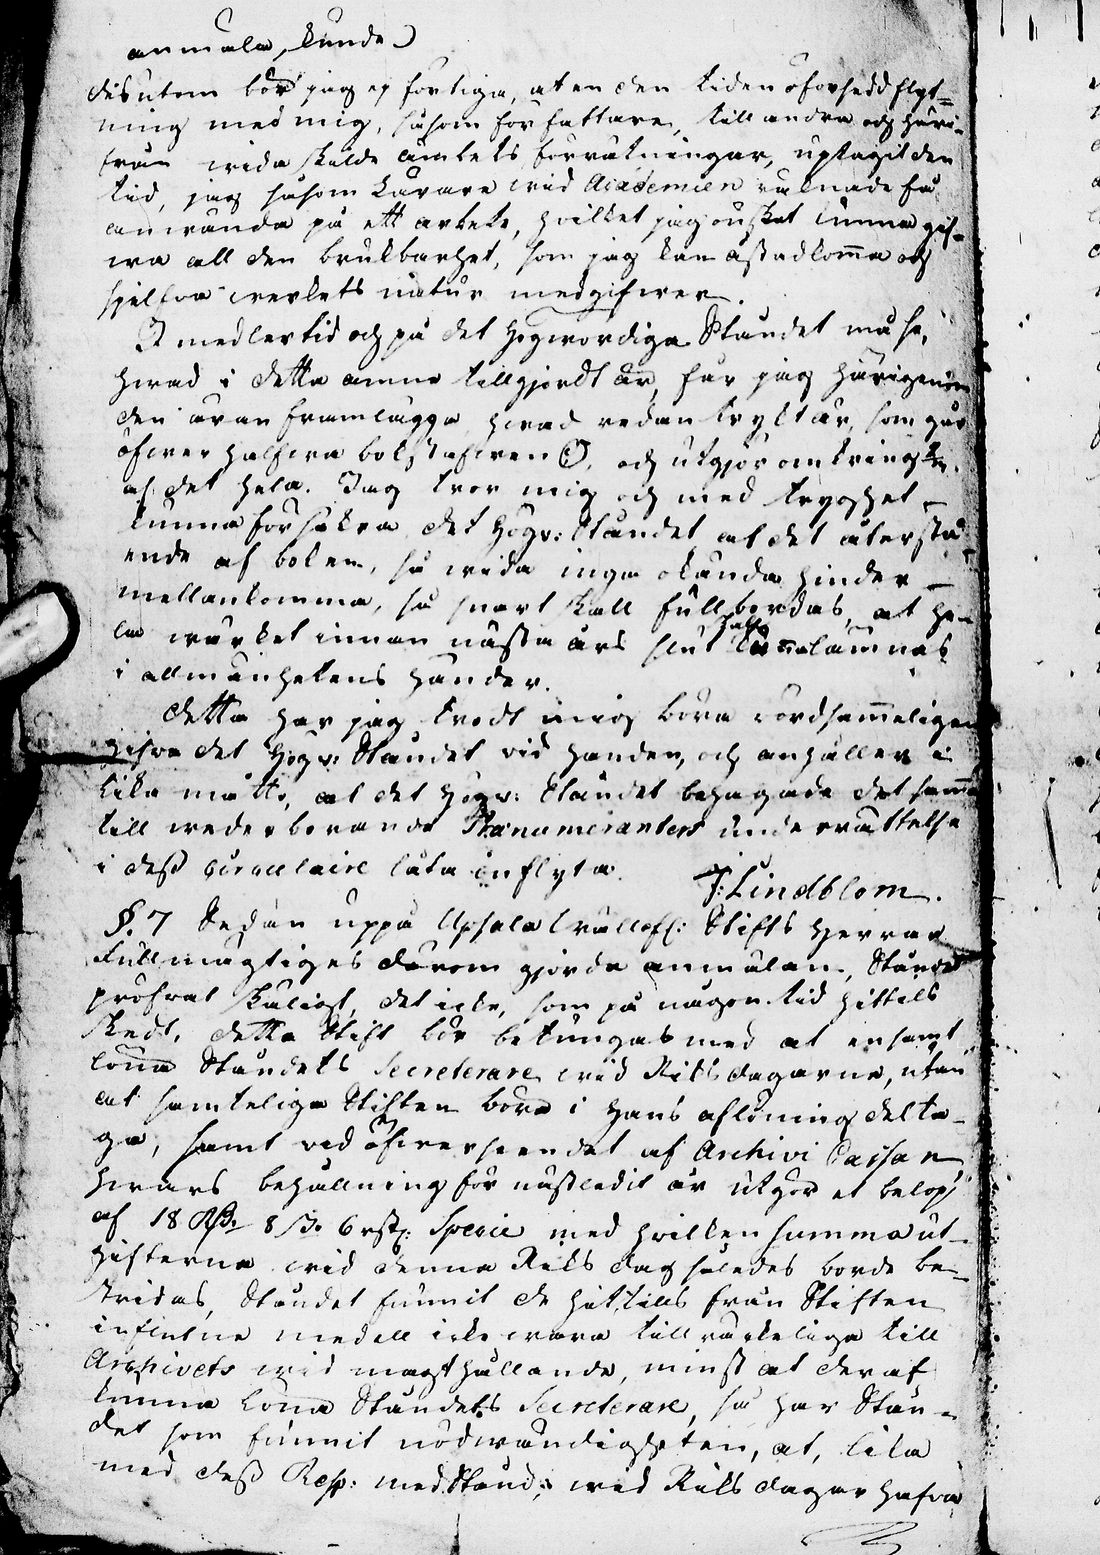 anmäla, kunde
desutom bör jag ej förtiga, at en den tiden oförsedd flyt-
ning med mig, såsom författare, till andra och häri-
från vida skilde ämbets förrätningar, uptagit den
tid, jag såsom Lärare wid Academien ärnade få
använda på ett arbete, hvilket jag önskat kunna gif-
wa all den brukbarhet, som jag kan åstadkomma och
sjelfva werkets natur medgifwer.
I medlertid och på det Högwördiga Ståndet må se,
hwad i detta ämne tillgjordt är, får jag härigenom
den äran framlägga hwad redan tryckt är, som går
öfwer halfwa bokstafwen O, och utgör omkring
af det hela. Jag tror mig och med trygghet
kunna försäkra det Högv: Ståndet at det återstå-
ende af boken, så wida inga okända hinder
mellankomma, så snart skall fullbordas, at he-
la wärket innan nästa års slut skall lämnas
i allmänhetens händer.
Detta har jag trodt mig böra wördsammeligen
gifva det Högv: Ståndet vid handen, och anhåller i
lika måtto, at det Högv: Ståndet behagade det samma
till wederbörande Prænumeranters underrättelse
i dess Circulaire låta inflyta. J: Lindblom.
§. 7 Sedan uppå Upsala Stifts Herrar
Fullmägtiges derom gjorde anmälan, Ståndet
pröfvat skäligt, det icke, som på någon tid hittils
skedt, detta Stift bör betungas med at ensamt
löna Ståndets Secreterare wid Riksdagarne, utan
at samtelige Stiften böra i hans aflöning delta-
ga, samt ved öfwerseendet af Archivi Cassan,
hwars behållning för nästledit år utgör et belopp
af 18 Rd. 8 s. 6 rst. Specie med hvilken summa ut-
gifterna wid denna Riksdag således borde be-
stridas, Ståndet funnit de hittills från Stiften
influtne medel icke wara tillräckeliga till
Archivets wid magt hållande, minst at deraf
kunna löna Ståndets Secreterare, så har Stån-
det som funnit nödwändigheten, at, lika
med dess Resp: medStånd, wid Riksdagar hafva